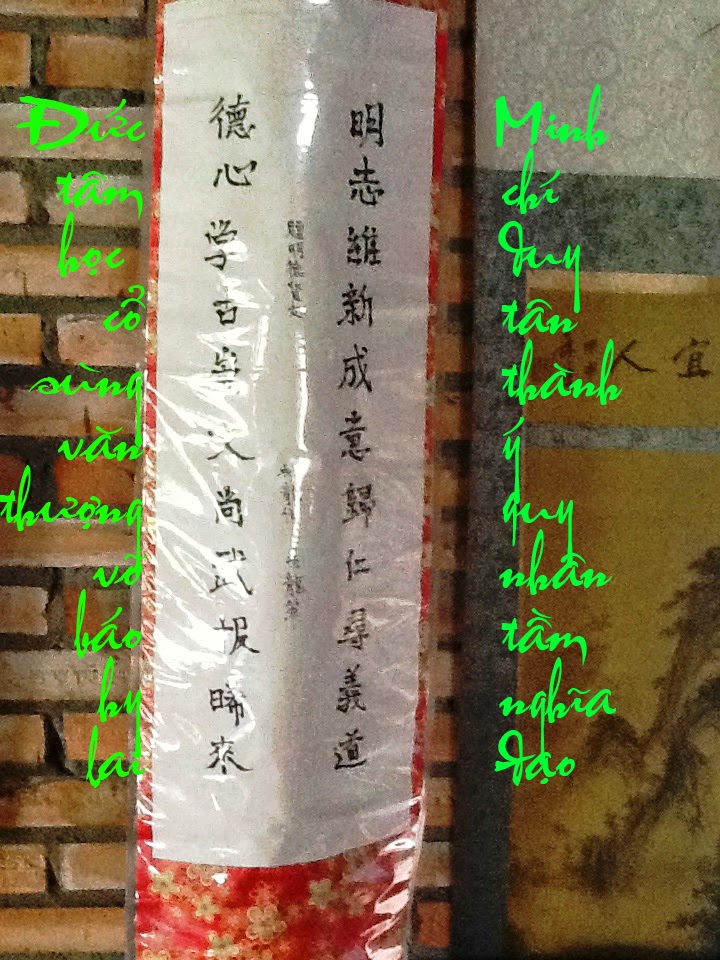 明志維新成意歸仁尋義道
德心学古崇文尚武报晞來
Minh chí duy tân thành ý quy nhân tầm nghĩa đạo
Đức tâm học cổ sùng văn thượng võ báo hy lai
宜人